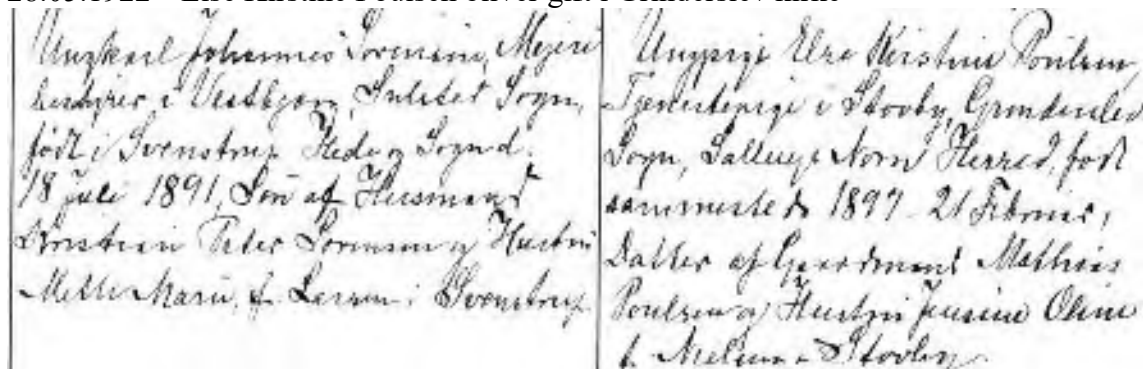 Ungkarl Johannes Sørensen, Mejeri
bestyrer i Vestbjerg, Sulsted Sogn,
født i Svenstrup Hede og Sogn d.
18 Juli 1891, Søn af Husmand
Kristian Peder Sørensen og Hustru
Mette Marie, f. Larsen i Svenstrup
Ungpige Else Kirstine Poulsen
Tjenestepige i Stovby, Grønderslev
Sogn, Salling Nørre Herred, født
sammesteds 1897 21 Februar,
Datter af Gaardmand Mathias
Poulsen og Hustru Jensine Oline
f. Nielsen i Stovby